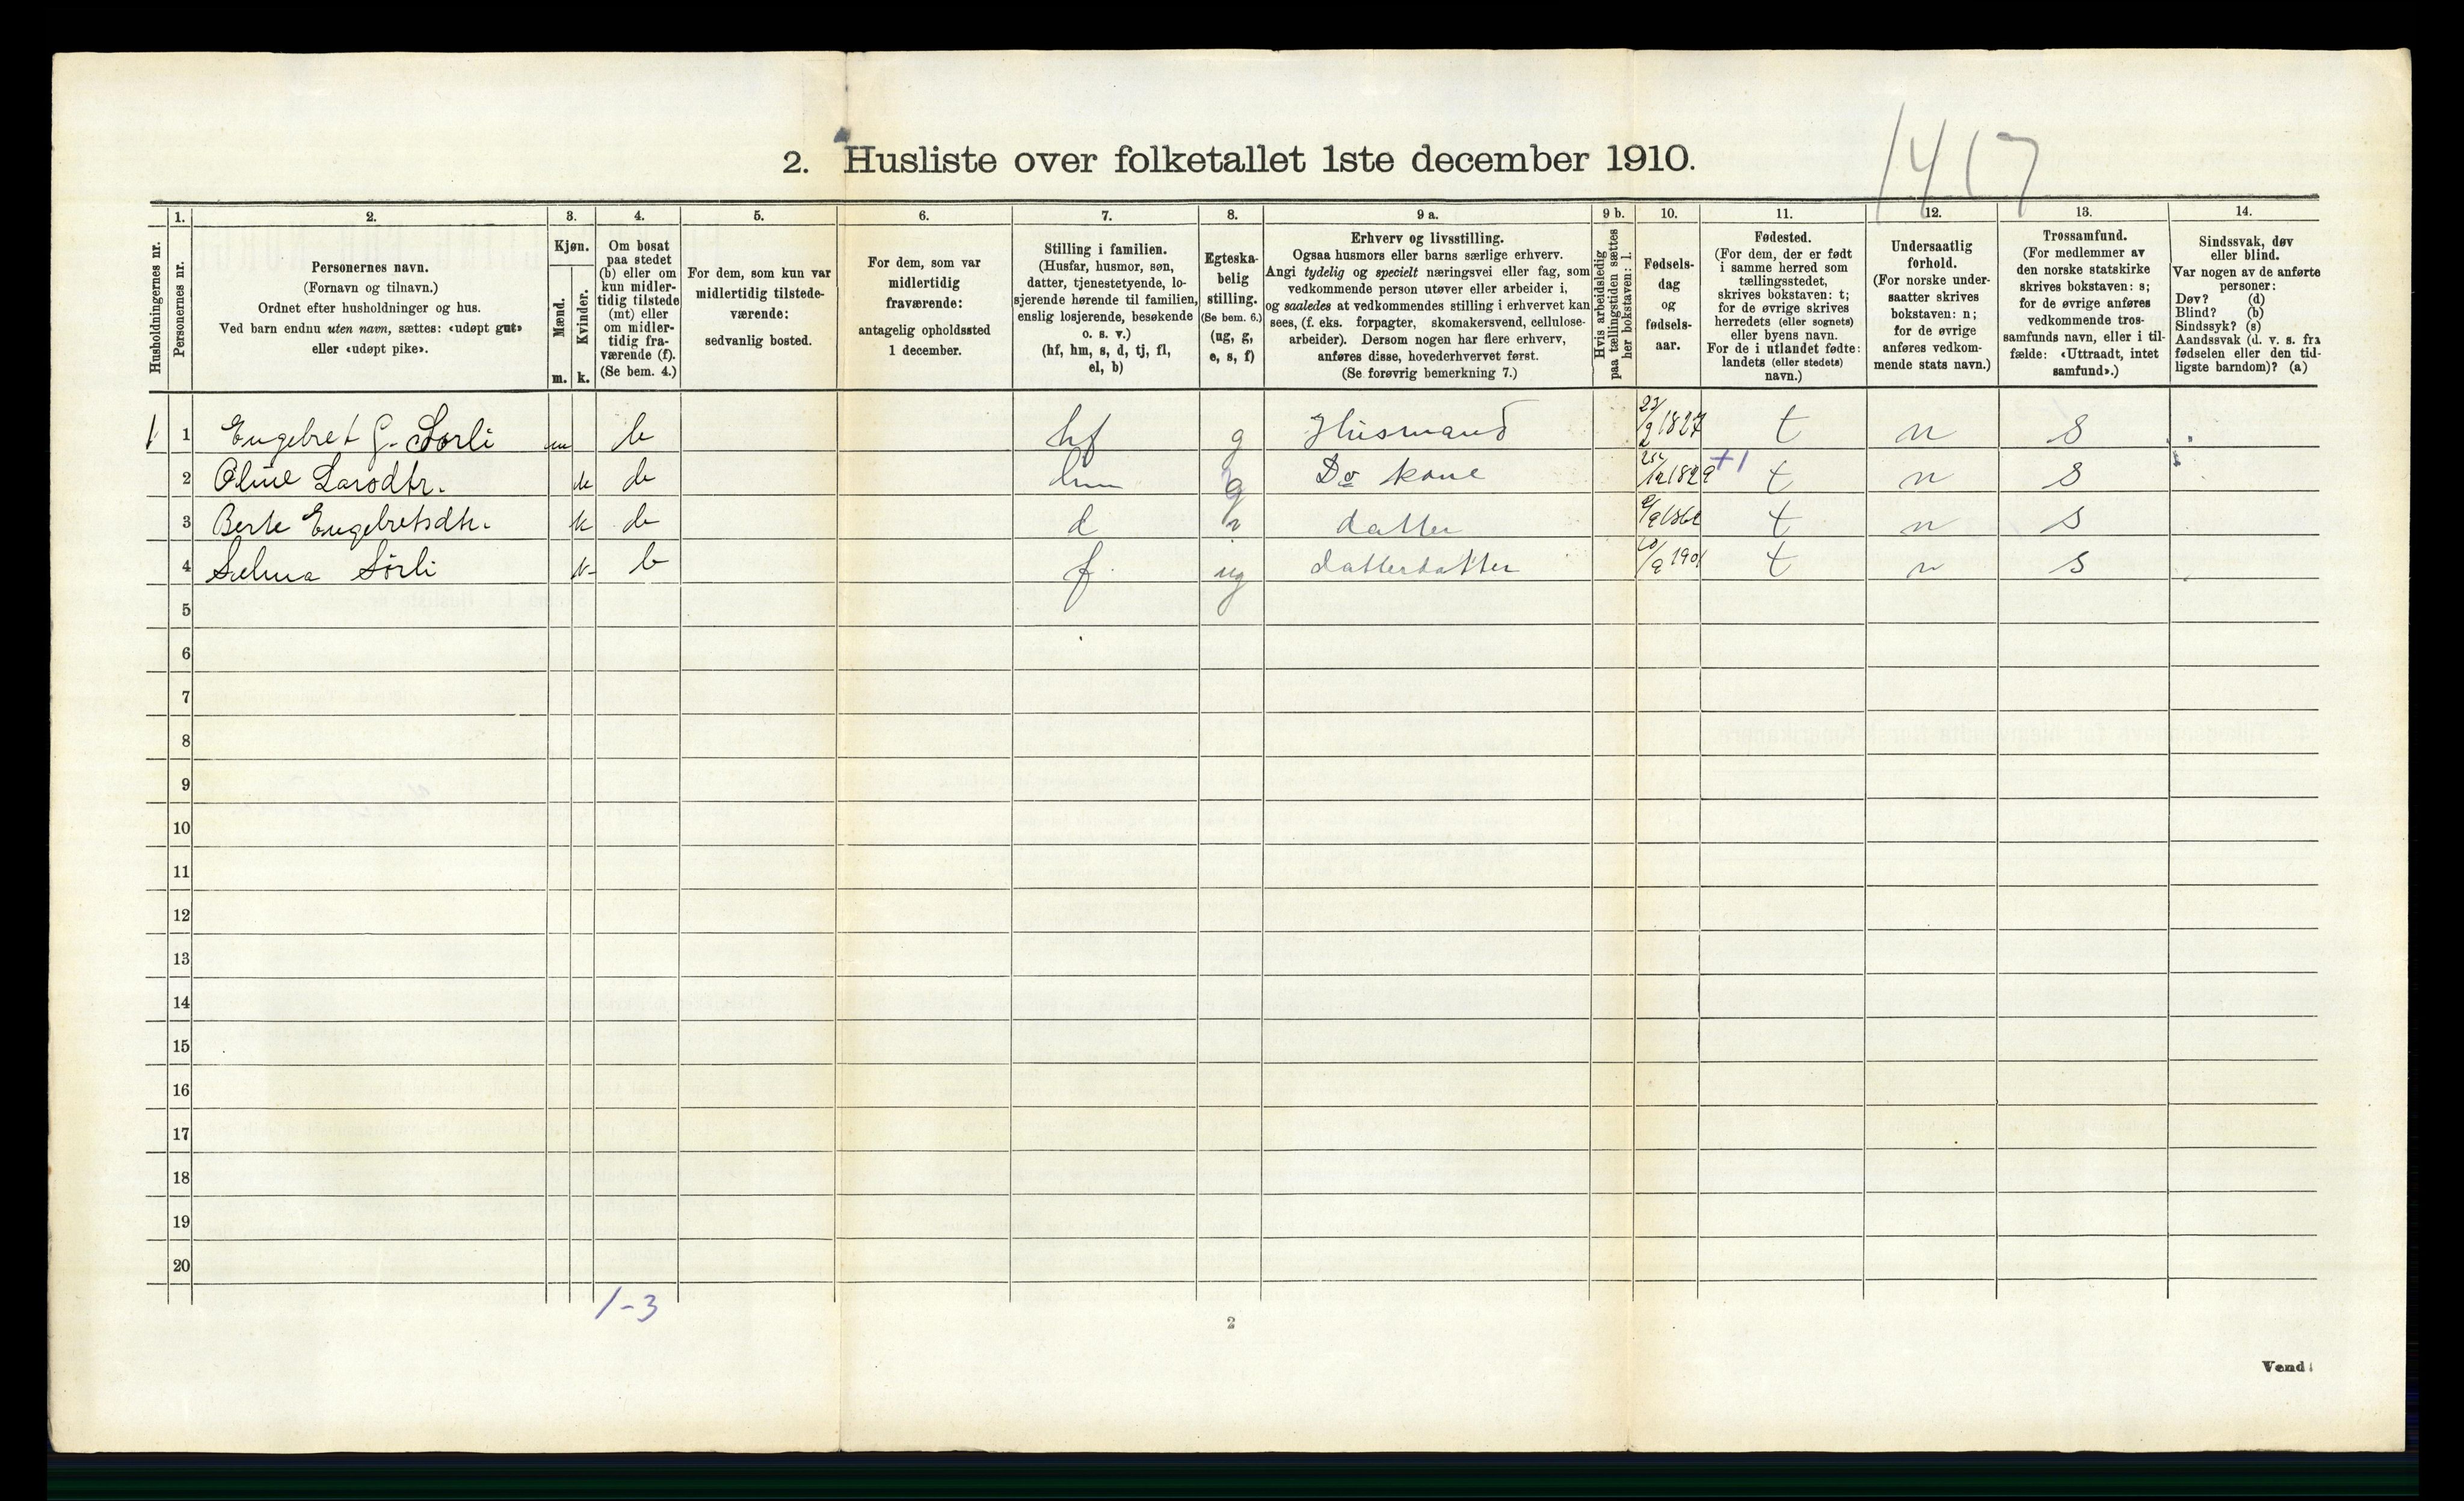 1417
2. Husliste over folketallet 1ste december 1910.
1. 2. 3. 4. 5. 6. 7. 8. 9 a. 9 b. 10. 11. 12. 13. 14.
Husholdningernes nr.
Personernes nr.
Personernes navn.
(Fornavn og tilnavn.)
Ordnet efter husholdninger og hus.
Ved barn endnu uten navn, sættes: «udøpt gut»
eller «udøpt pike».
Kjøn.
Mænd.
Kvinder.
m. k.
Om bosat
paa stedet
(b) eller om
kun midler-
tidig tilstede
(mt) eller
om midler-
tidig fra-
værende (f).
(Se bem. 4.)
For dem, som kun var
midlertidig tilstede-
værende:
sedvanlig bosted.
For dem, som var
midlertidig
fraværende:
antagelig opholdssted
1 december.
Stilling i familien.
(Husfar, husmor, søn,
datter, tjenestetyende, lo-
sjerende hørende til familien,
enslig losjerende, besøkende
o. s. v.)
(hf, hm, s, d, tj, fl,
el, b)
Egteska-
belig
stilling.
(Se bem. 6.)
(ug, g,
e, s, f)
Erhverv og livsstilling.
Ogsaa husmors eller barns særlige erhverv.
Angi tydelig og specielt næringsvei eller fag, som
vedkommende person utøver eller arbeider i,
og saaledes at vedkommendes stilling i erhvervet kan
sees, (f. eks. forpagter, skomakersvend, cellulose-
arbeider). Dersom nogen har flere erhverv,
anføres disse, hovederhvervet først.
(Se forøvrig bemerkning 7.)
Hvis arbeidsledig
paa tællingstiden sættes
her bokstaven: l.
Fødsels-
dag
og
fødsels-
aar.
Fødested.
(For dem, der er født
i samme herred som
tællingsstedet,
skrives bokstaven: t;
for de øvrige skrives
herredets (eller sognets)
eller byens navn.
For de i utlandet fødte:
landets (eller stedets)
navn.)
Undersaatlig
forhold.
(For norske under-
saatter skrives
bokstaven: n;
for de øvrige
anføres vedkom-
mende stats navn.)
Trossamfund.
(For medlemmer av
den norske statskirke
skrives bokstaven: s;
for de øvrige anføres
vedkommende tros-
samfunds navn, eller i til-
fælde: «Uttraadt, intet
samfund».)
Sindssvak, døv
eller blind.
Var nogen av de anførte
personer:
Døv? (d)
Blind? (b)
Sindssyk? (s)
Aandssvak (d. v. s. fra
fødselen eller den tid-
ligste barndom)? (a)
1 1 Engebret G. Sorli m b hf g Husmand 1827 t n s
2 Oline Larsdtr. k b hm g Do kone 1829 +1 t n s
3 Berte Engebretsdtr. k b d datter t n s
4 Selma Sørli k b f ug datterdatter 10/9 1901 t n s
5
6
7
8
9
10
11
12
13
14
15
16
17
18
19
20
1-3
2
Vend!